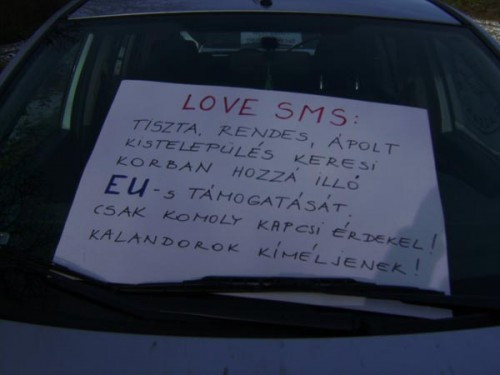 LOVE SMS:
TISZTA, RENDES, ÁPOLT
KISTELEPÜLÉS KERESI
KORBAN HOZZÁ ILLŐ
EU-S TÁMOGATÁSÁT.
CSAK KOMOLY KAPCSI ÉRDEKEL!
KALANDOROK KÍMÉLJENEK!